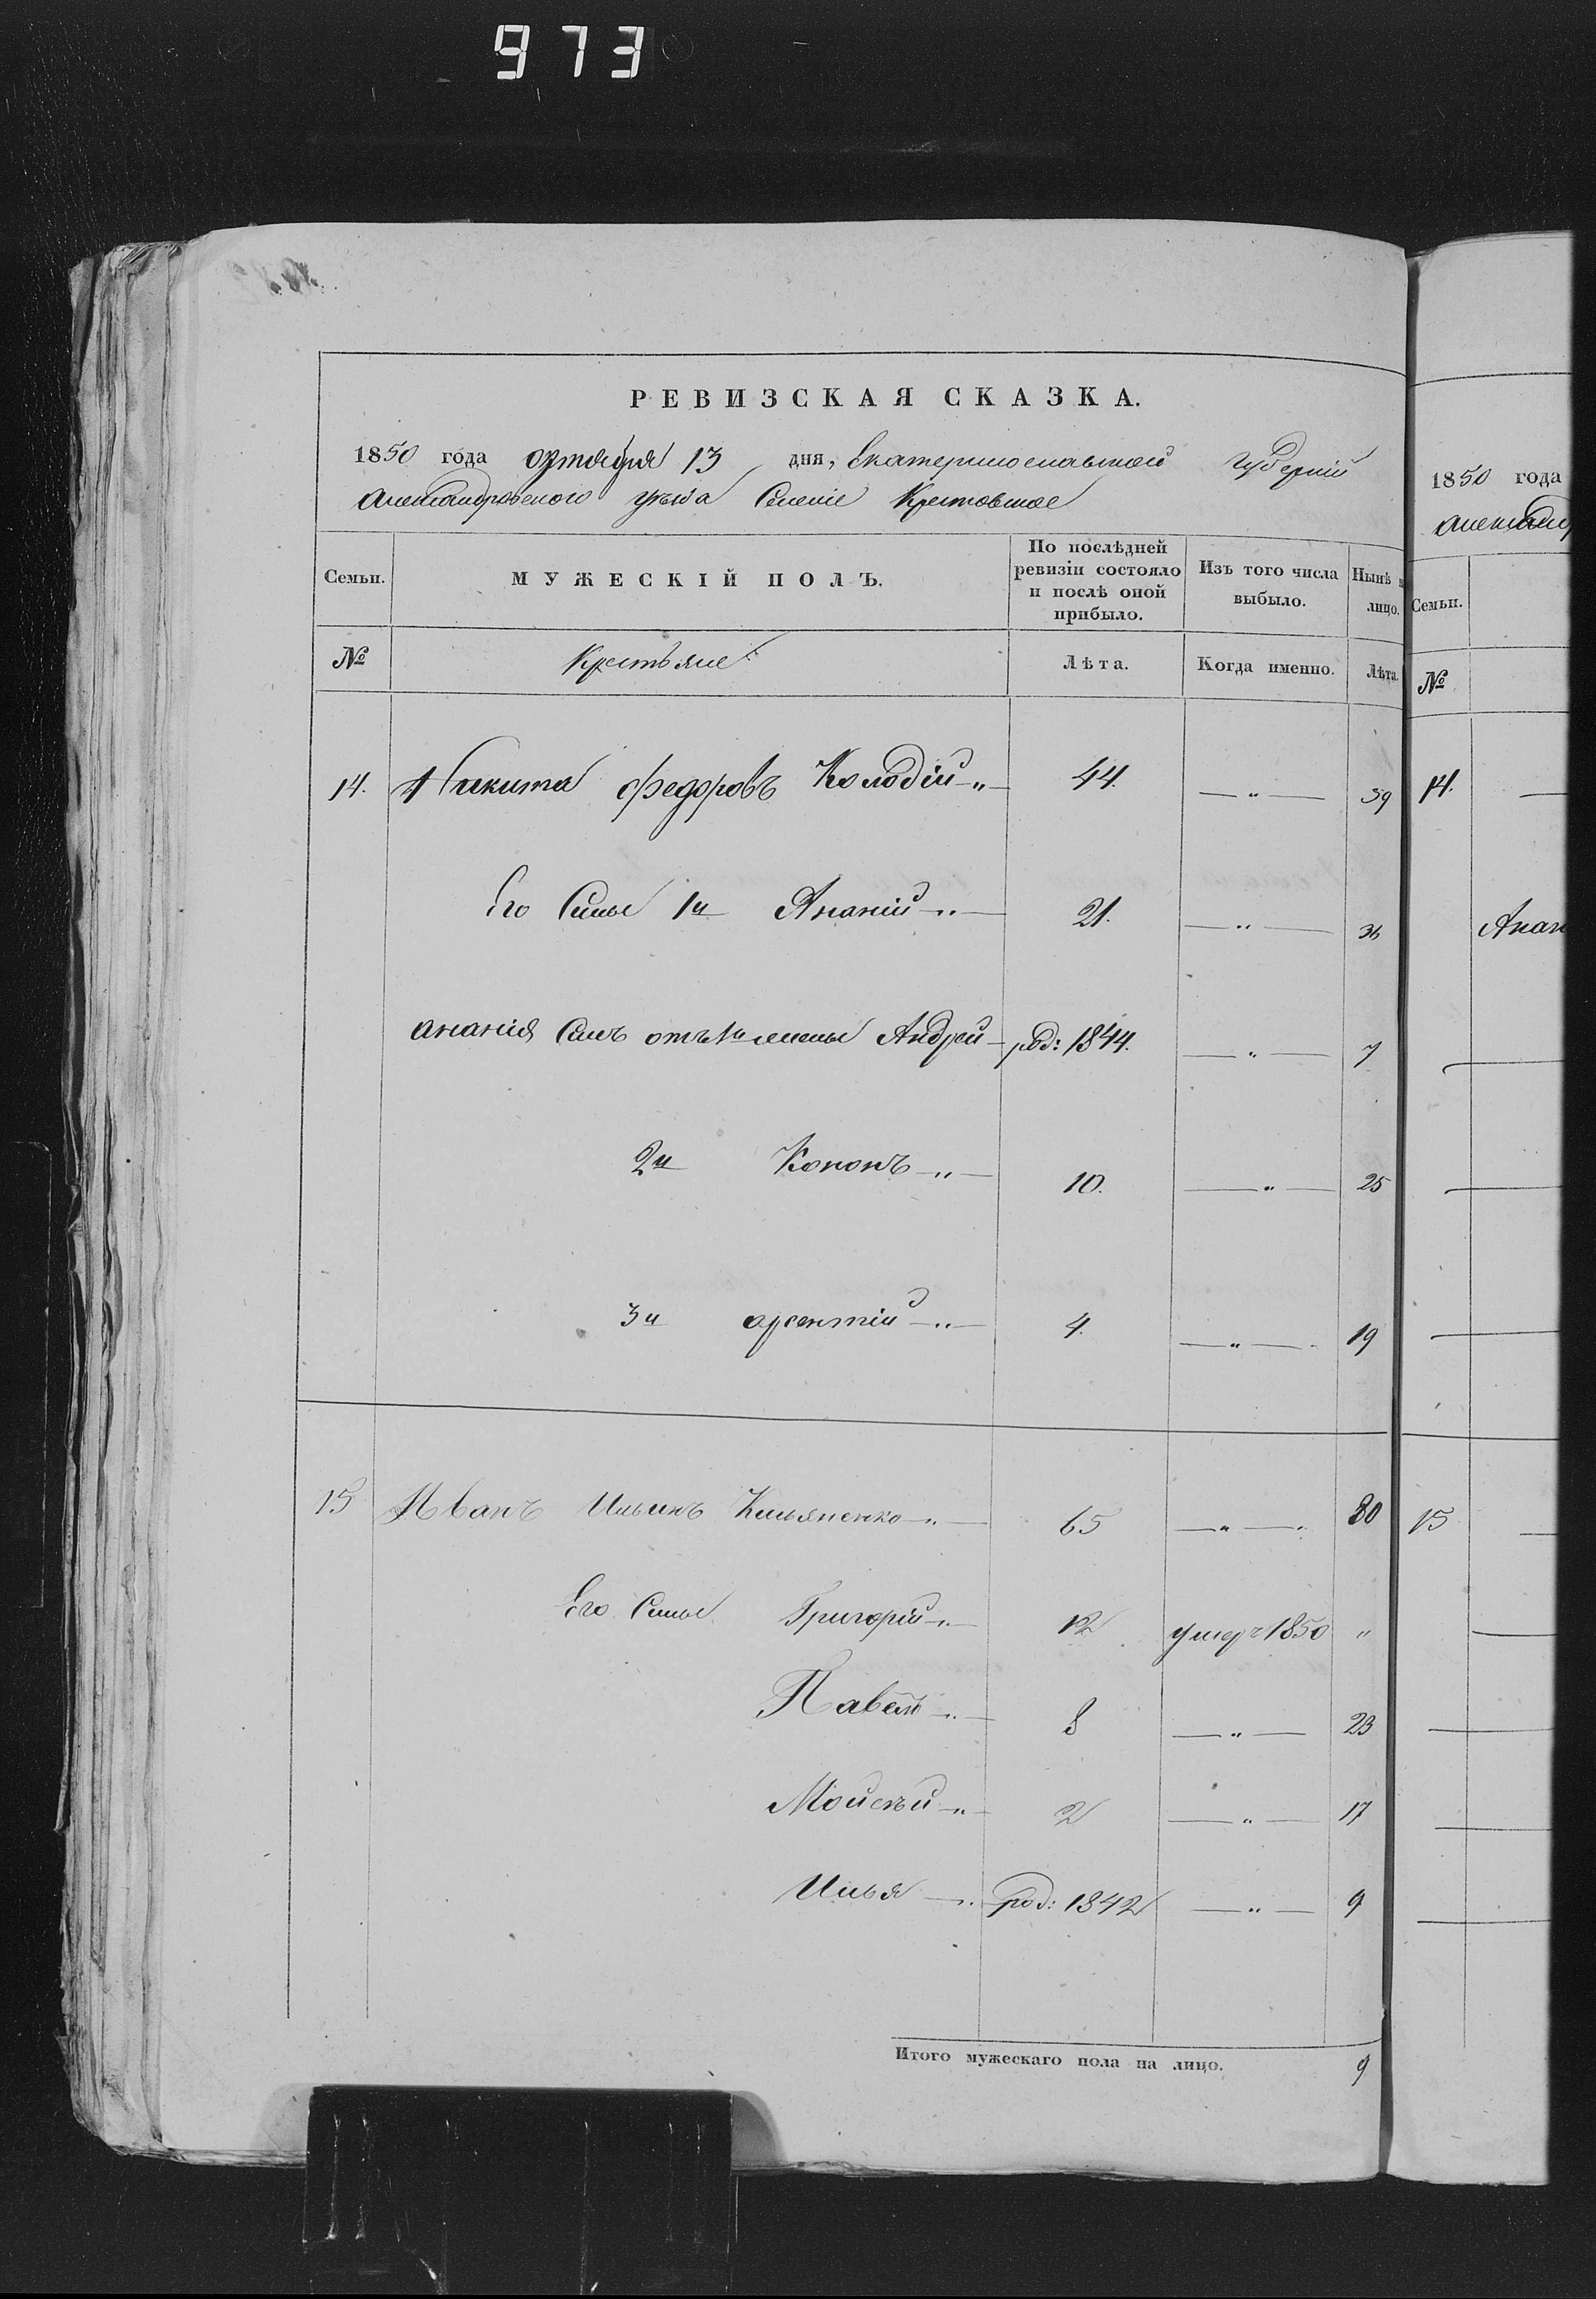 973
РЕВИЗСКАЯ СКАЗКА.
1850 года октября 13 дня, Екатеринославской губерніи
Александровского уезда Селеніе Крестовское
Семьи. МУЖЕСКІЙ ПОЛЪ. По послѣдней ревизіи состояло и послѣ оной прибыло. Изъ того числа выбыло. Нынѣ н лицо.
№ Крестьяне Лѣта. Когда именно. Лѣта.
14. Никита Федоровъ Колодій -„- 44. -„- 59
Его Сины 1й Ананій -„- 21. -„- 36
Ананія Синъ отъ 1й жены Андрей - род: 1844. -„- 7
2й Кононъ -„- 10. -„- 25
3й Арсентій -„- 4. -„- 19
15 Иванъ Ильинъ -„- 65 -„- 80
Его Сины Григорій -„- 12 умеръ 1850 „
Павелъ -„- 8 -„- 23
Мойсѣй -„- 2 -„- 17
Илья -„- род: 1842 -„- 9
Итого мужескаго пола на лицо. 9
1850 года
Александр
Семьи.
№
14.
Анан
15